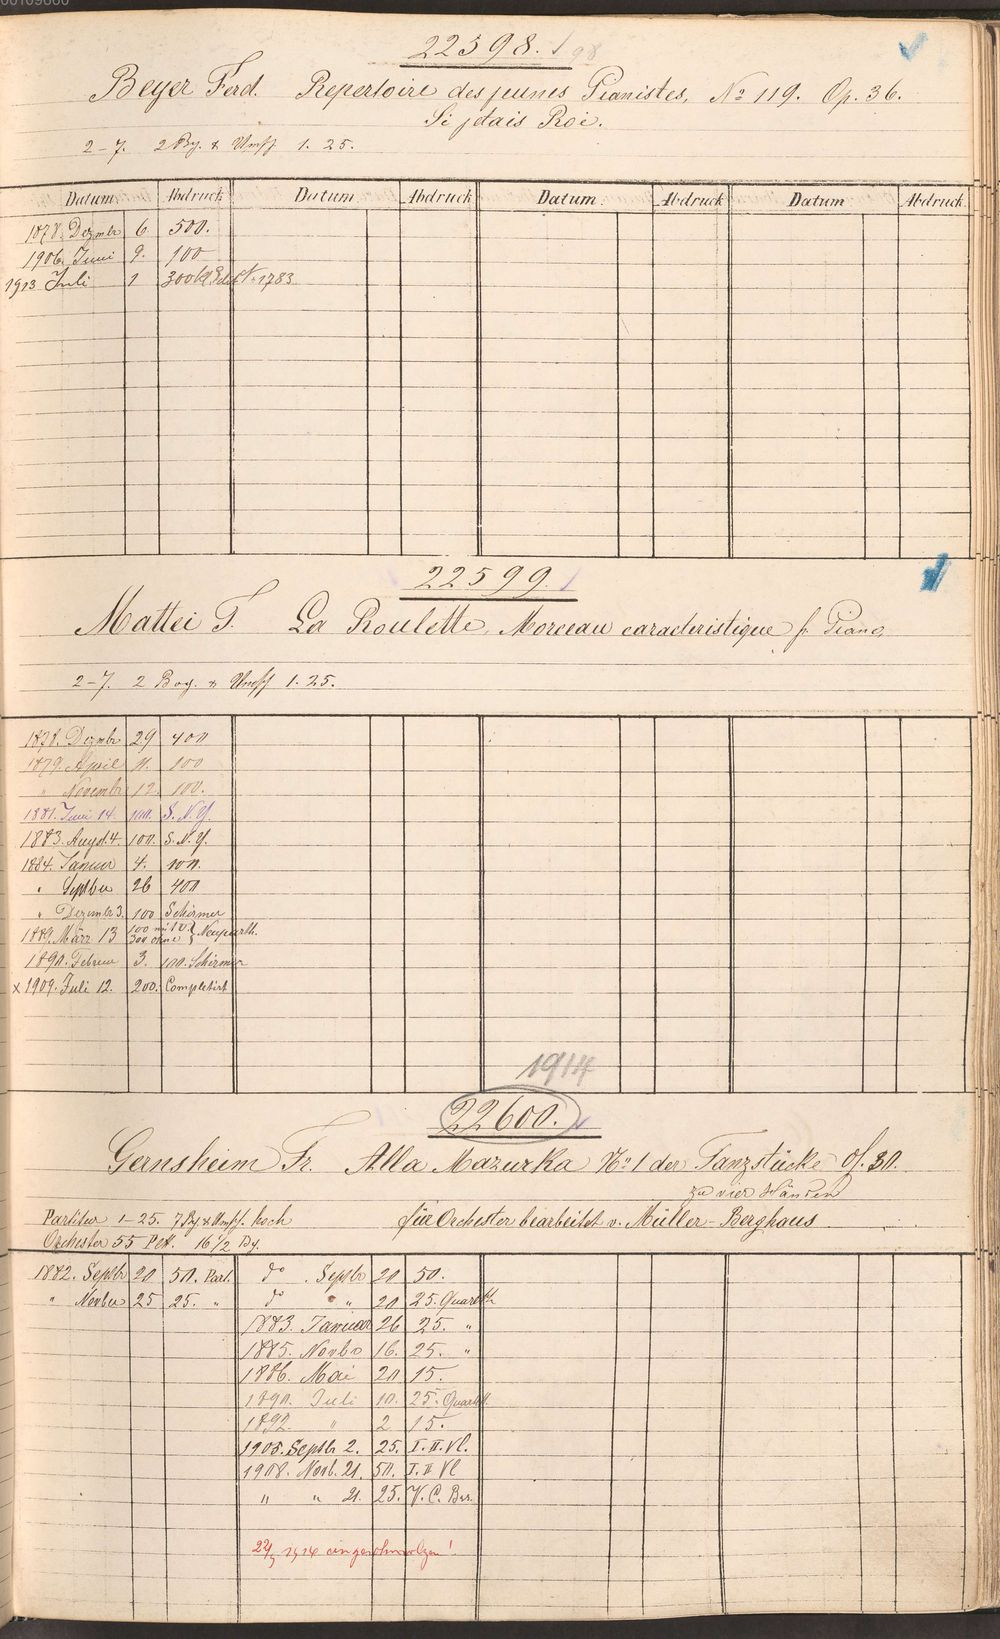 22598.
Beyer Ferd. Repertoire des jeunes Pianistes, No 119. Op. 36.
Si j'étais Roi.
2-7. 2 Bg. & Umschl. 1. 25.
Datum. Abdruck Datum Abdruck Datum. Abdruck Datum Abdruck
1878. Dezmbr 6 500.
1906. Juni 9. 100
1913 Juli 1 300 No 1783
22599.
Mattei T. La Roulette, Morceau caracteristique fr Piano
2-7. 2 Bog. & Umschl 1. 25.
1878. Dezmbr 29 400
1879. April 11. 100
" Novembr 12. 100.
1881. Juni 14. 100. S. N. Y.
1883. Augst. 4. 100. S. N. Y.
1884. Januar 4. 100.
" Septber 26 400
" Dezember 3. 100 Schirmer
1889. März 13 100 mit V. 300 ohne
1890. Februar 3. 100. Schirmer
x 1909. Juli 12. 200. Completirt
1914
22600.
Gernsheim Fr. Alla Mazurka No 1 der Tanzstücke Op. 30.
zu vier Händen
Partitur 1-25. 7 Bg. & Umschl. hoch für Orchester bearbeitet v. Müller-Berghaus
Orchester 55 Plt. 16 1/2 Bg.
1882. Septbr 20 50. Part. do . Septbr 20 50.
" Novber 25 25. " do " 20 25. Quartett
1883. Januar 26 25. "
1885. Novbr 16. 25. "
1886. Mai 20 15.
1890. Juli 10. 25. Quartett.
1892. " 2 15.
1905. Septbr 2. 25. I. II. Vl.
1908. Novb. 21. 50. I. II Vl
" " 21. 25. V. C. Bss.
eingeschmolzen!